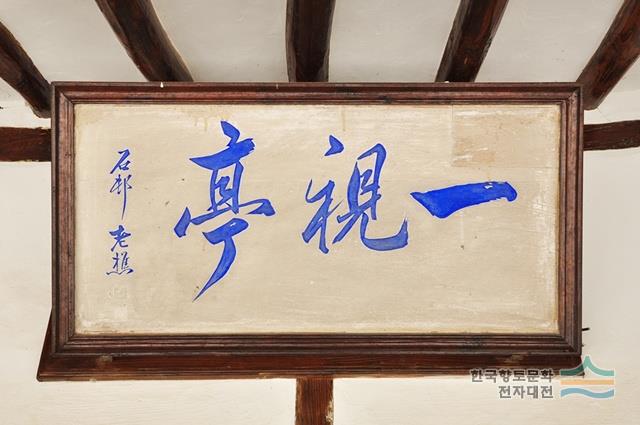 一視亭
石邨老樵
한국향토문화
전자대전